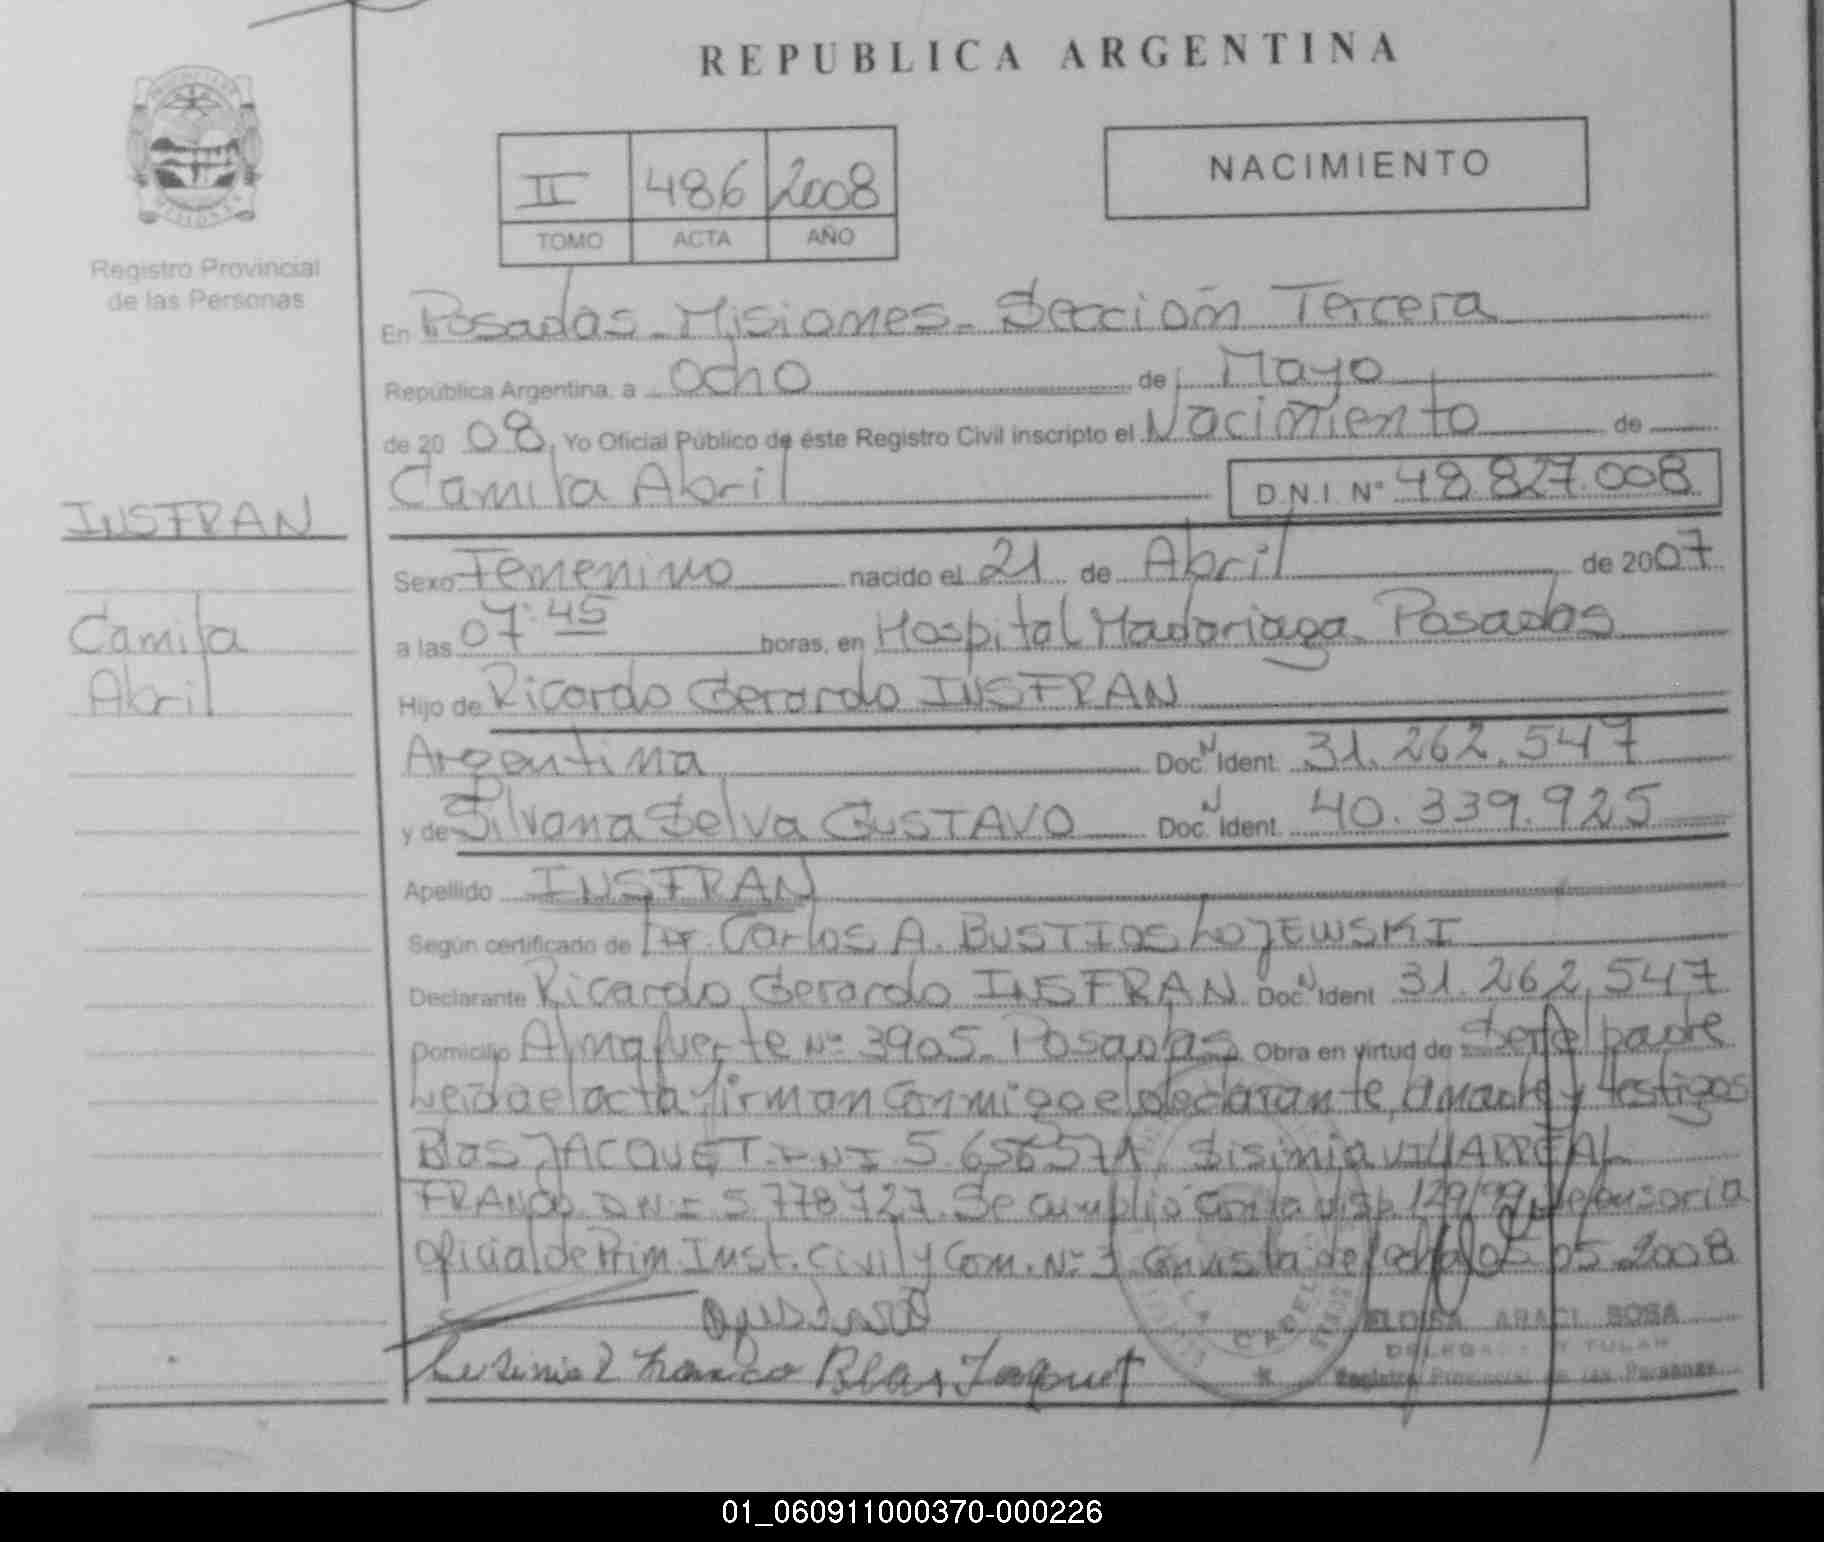 REPUBLICA ARGENTINA
NACIMIENTO
II 486 2008
TOMO ACTA AÑO
Registro Provincial
de las Personas
En Posadas - Misiones - Sección Tercera
República Argentina, a Ocho de Mayo
de 2008, Yo Oficial Público de éste Registro Civil inscripto el Nacimiento de
Camila Abril D.N.I. Nº 48.827.008
INSFRAN
Camila
Abril
Sexo Femenino nacido el 21 de Abril de 2007
a las 07:45 horas, en Hospital Madariaga Posadas
Hijo de Ricardo Gerardo INSFRAN
Argentina Doc. N Ident. 31.262.547
y de Silvana Selva GUSTAVO Doc. N Ident. 40.339.925
Apellido INSFRAN
Según certificado de Dr. Carlos A. BUSTIOS LOJEWSKI
Declarante Ricardo Gerardo INSFRAN Doc. N Ident 31.262.547
Domicilio Almafuerte Nº 3905 - Posadas Obra en virtud de Ser el padre
Leida el acta firman conmigo el declarante, la madre y testigos
Blas JACQUET. DNI 5.656571, Sisinia VILLARREAL
FRANCO DNI 5.778727. Se cumplió con la disp. 129/99, defensoria
Oficial de Prim. Inst. Civil y Com. Nº 3 con vista de fecha 05.05.2008
Franco Blas Jaquet
ELOISA ARACI SOSA
DELEGADA TITULAR
Registro Provincial de las Personas
01_060911000370-000226